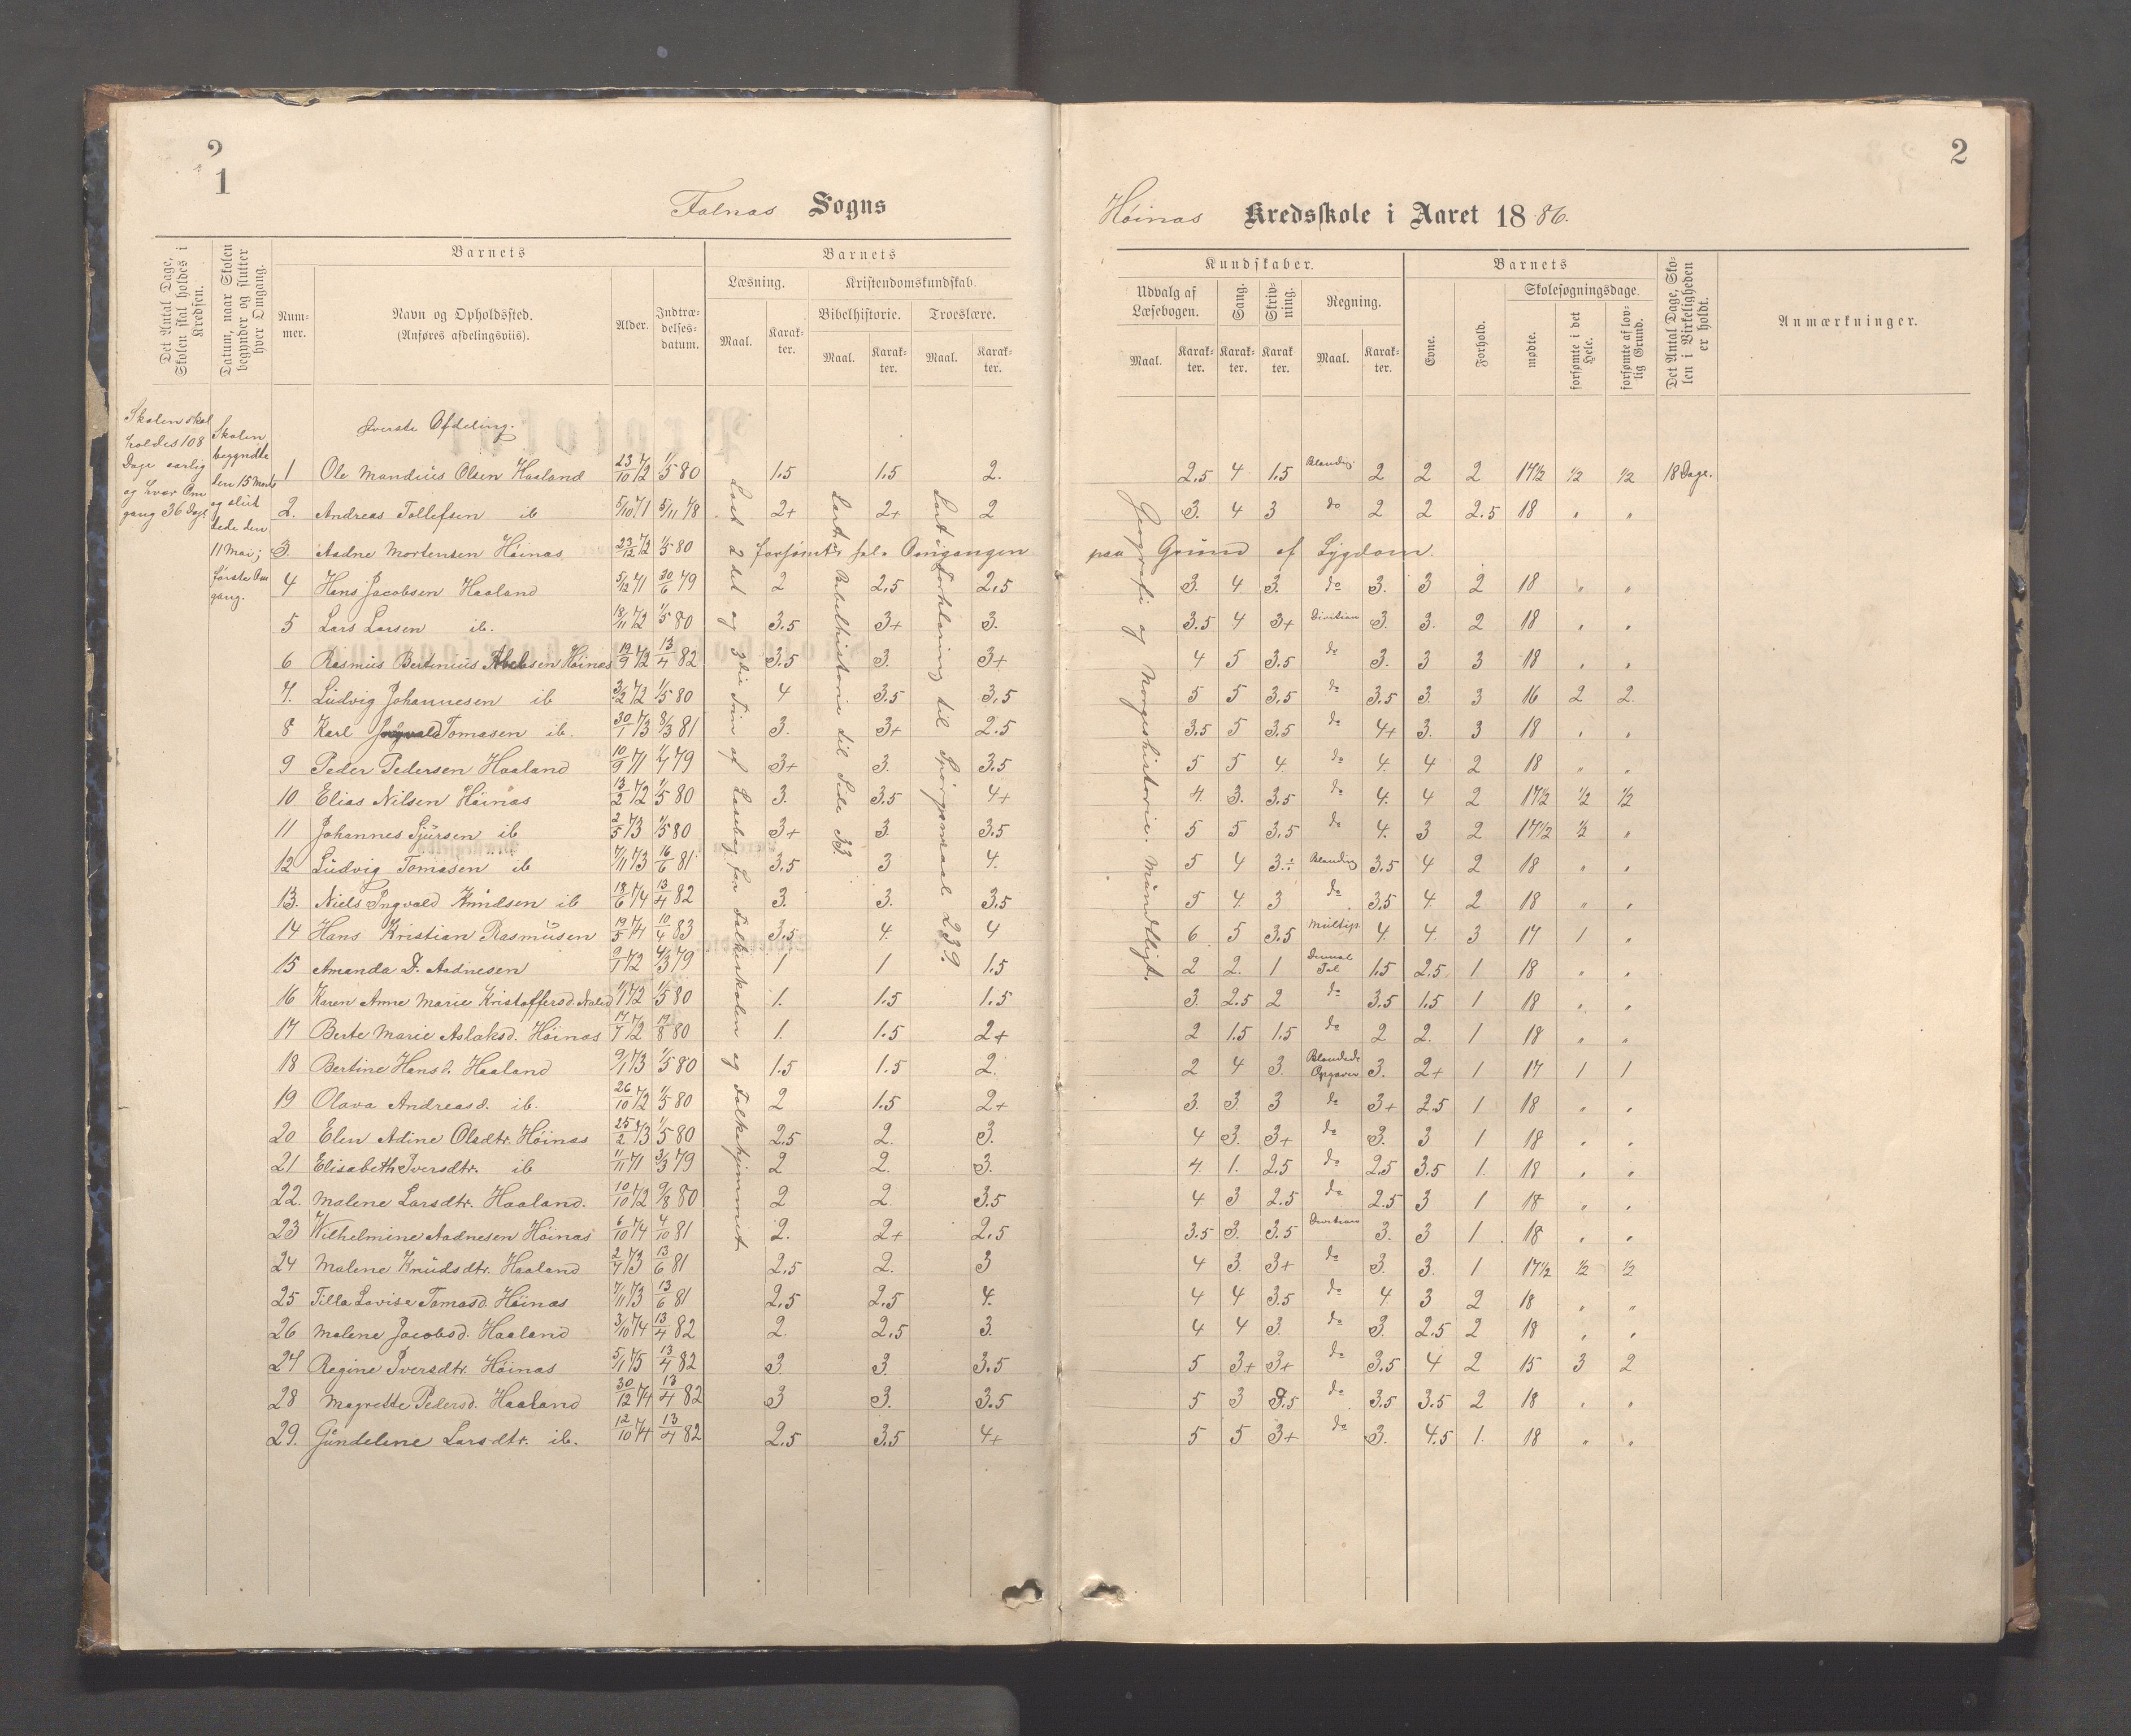 2
1
2
Falnæs Sogns
Høinæs Kredsskole i Aaret 1886.
Det Antal Dage, Skolen skal holdes i Kredsen.
Datum, naar Skolen begynder og slutter hver Omgang.
Barnets
Nummer.
Navn og Opholdssted.
(Anføres afdelingsviis).
Alder.
Indtrædelsesdatum.
Barnets
Læsning.
Kristendomskundskab.
Bibelhistorie.
Troeslære.
Maal.
Karakter.
Maal.
Karakter.
Maal.
Karakter.
Kundskaber.
Udvalg af Læsebogen.
Sang.
Skrivning.
Regning.
Maal.
Karakter.
Karakter.
Karakter
Maal.
Karakter.
Barnets
Evne.
Forhold.
Skolesøgningsdage.
mødte.
forsømte i det Hele.
forsømte af lovlig Grund.
Det Antal Dage, Skolen i Virkeligheden er holdt.
Anmærkninger.
Skolen skal holdes 108 Dage aarlig og hver Omgang 36 Dage
Skolen begyndte den 15 Marts og sluttede den 11 Mai; første Omgang.
Øverste Afdeling.
Læst 2 del og 3die Trin af Læsebog for Folkeskolen og Folkehjemmet
Lært Bibelhistorie til Side 33.
Lært Forklaring til Spørgsmaal 239.
Geografi og Norgeshistorie. Mundtligt.
1 Ole Mandius Olsen Haaland 23/10 72 1/5 80 1.5 1.5 2. 2.5 4 1.5 Blanding 2 2 2 17½ ½ ½ 18 Dage.
2. Andreas Tollefsen ib 5/10 71 5/11 78 2+ 2+ 2 3. 4 3 do 2 2 2.5 18 " "
3. Aadne Mortensen Høinæs 23/12 72 1/5 80 forsømte hele Omgangen paa Grund af Sygdom.
4 Hans Jacobsen Haaland 5/12 71 30/6 79 2 2,5 2,5 3. 4 3. do 3. 3 2 18 " "
5 Lars Larsen ib. 18/11 72 1/5 80 3.5 3+ 3. 3.5 4 3+ Division 3. 3. 2 18 " "
6 Rasmus Bertinius Abelsen Høinæs 19/9 72 13/4 82 3.5 3. 3+ 4 5 3.5 do 3. 3 3 18 " "
7. Ludvig Johannesen ib 3/2 72 1/5 80 4 3.5 3,5 5 5 3,5 do 3.5 3. 3 16 2 2.
8 Karl Tomasen ib. 30/1 73 8/3 81 3. 3+ 2.5 3.5 5 3.5 do 4+ 3. 3 18 " "
9 Peder Pedersen Haaland 10/9 71 1/7 79 3+ 3. 3.5 5 5 4 do 4. 4 2 18 " "
10. Elias Nilsen Høinæs 13/2 72 1/5 80 3. 3.5 4+ 4. 3. 3.5 do 4. 4 2 17½ ½ ½
11 Johannes Sjursen ib 2/5 73 1/5 80 3+ 3. 3.5 5 5 3,5 do 4. 3 2 17½ ½ "
12 Ludvig Tomasen ib 7/11 73 16/6 81 3.5 3 4. 5 4 3.÷ Blanding 3.5 4 2 18 " "
13. Niels Ingvald Knudsen ib 18/6 74 13/4 82 3. 3. 3.5 5 4. 3 do 3.5 4. 2 18 " "
14 Hans Kristian Rasmusen 19/5 74 10/4 83 3.5 4. 4 6 5 3.5 Multip. 4. 4. 3 17 1 "
15 Amanda D. Aadnesen 9/1 72 4/3 79 1 1 1.5 2 2. 1 Decimal Tal 1.5 2.5 1 18 " "
16 Karen Anne Marie Kristoffersd. 1/1 72 1/5 80 1. 1.5 1.5 3 2.5 2 do 3.5 1.5 1 18 " "
17 Berte Marie Aslaksd. Høinæs 17/7 72 19/8 80 1. 1.5 2+ 2 1.5 1.5 do 2 2. 1 18 " "
18 Bertine Hansd. Haaland 9/1 73 1/5 80 1.5 1.5 2. 2 4 3. Blandede Opgaver 3. 2+ 1 17 1 1
19 Olava Andreasd. ib. 26/10 72 1/5 80 2 1.5 2+ 3. 3. 3 do 3+ 2.5 1 18 " "
20 Elen Adine Olsdtr. Høinæs 25/2 73 1/5 80 2.5 2. 3. 4 3. 3+ do 3. 3 1 18 " "
21 Elisabeth Iversdtr. ib 11/11 71 3/3 79 2 2. 3. 4. 1. 2.5 do 2.5 3.5 1. 18 " "
22. Malene Larsdtr. Haaland. 10/10 72 9/8 80 2 2 3.5 4 3 2.5 do 2.5 3 1 18 " "
23 Wilhelmine Aadnesen Høinæs 6/10 74 4/10 81 2. 2+ 2.5 3.5 3. 3.5 Division 3. 3 1 18 " "
24 Malene Knudsdtr. Haaland 2/7 73 13/6 81 2.5 2. 3 4 3. 3+ do 3. 3. 1 17½ ½ ½
25 Tilla Lovise Tomasd. Høinæs 7/11 73 13/6 81 2,5 2,5 4. 4 4 3.5 do 4. 3 2 18 " "
26 Malene Jacobsd. Haaland 3/10 74 13/4 82 2. 2,5 3. 4 4 3. do 3. 2.5 2 18 " "
27 Regine Iversdtr. Høinæs 5/1 75 13/4 82 3. 3. 3.5 5 3+ 3+ do 3.5 4 2 15 3 2
28 Magrette Pedersd. Haaland 30/12 74 13/4 82 3 3. 3.5 5 3 3.5 do 3.5 3.5 2 18 " "
29. Gundeline Larsdtr. ib. 12/10 74 13/4 82 2.5 3.5 4+ 5 5 3+ do 3. 4.5 1. 18 " "